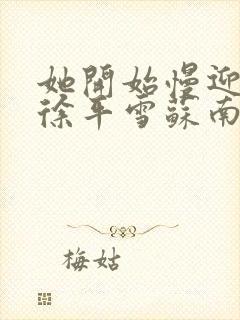 她開始慢迎
徐平雪蘇南
梅姑